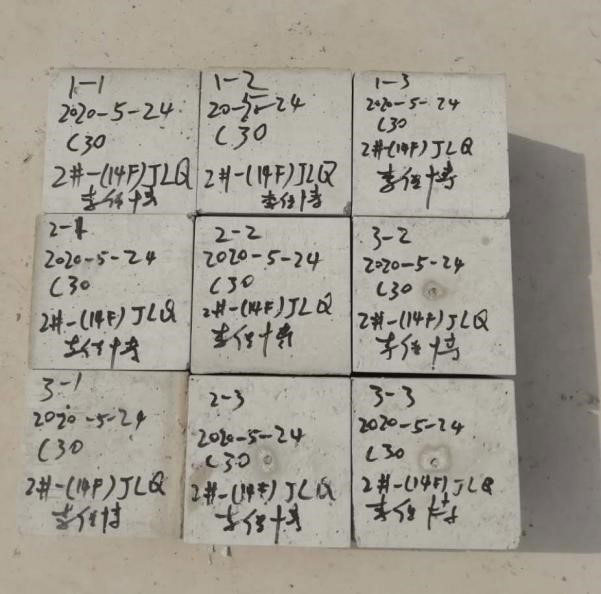 1-1
2020-5-24
C30
2#-(14F)JLQ
1-2
20-5-24
C30
2#-(14F)JLQ
1-3
2020-5-24
C30
2#-(14F)JLQ
2-1
2020-5-24
C30
2#-(14F)JLQ
2-2
2020-5-24
C30
2#-(14F)JLQ
3-2
2020-5-24
C30
2#-(14F)JLQ
3-1
2020-5-24
C30
2#-(14F)JLQ
2-3
2020-5-24
C30
2#-(14F)JLQ
3-3
2020-5-24
C30
2#-(14F)JLQ